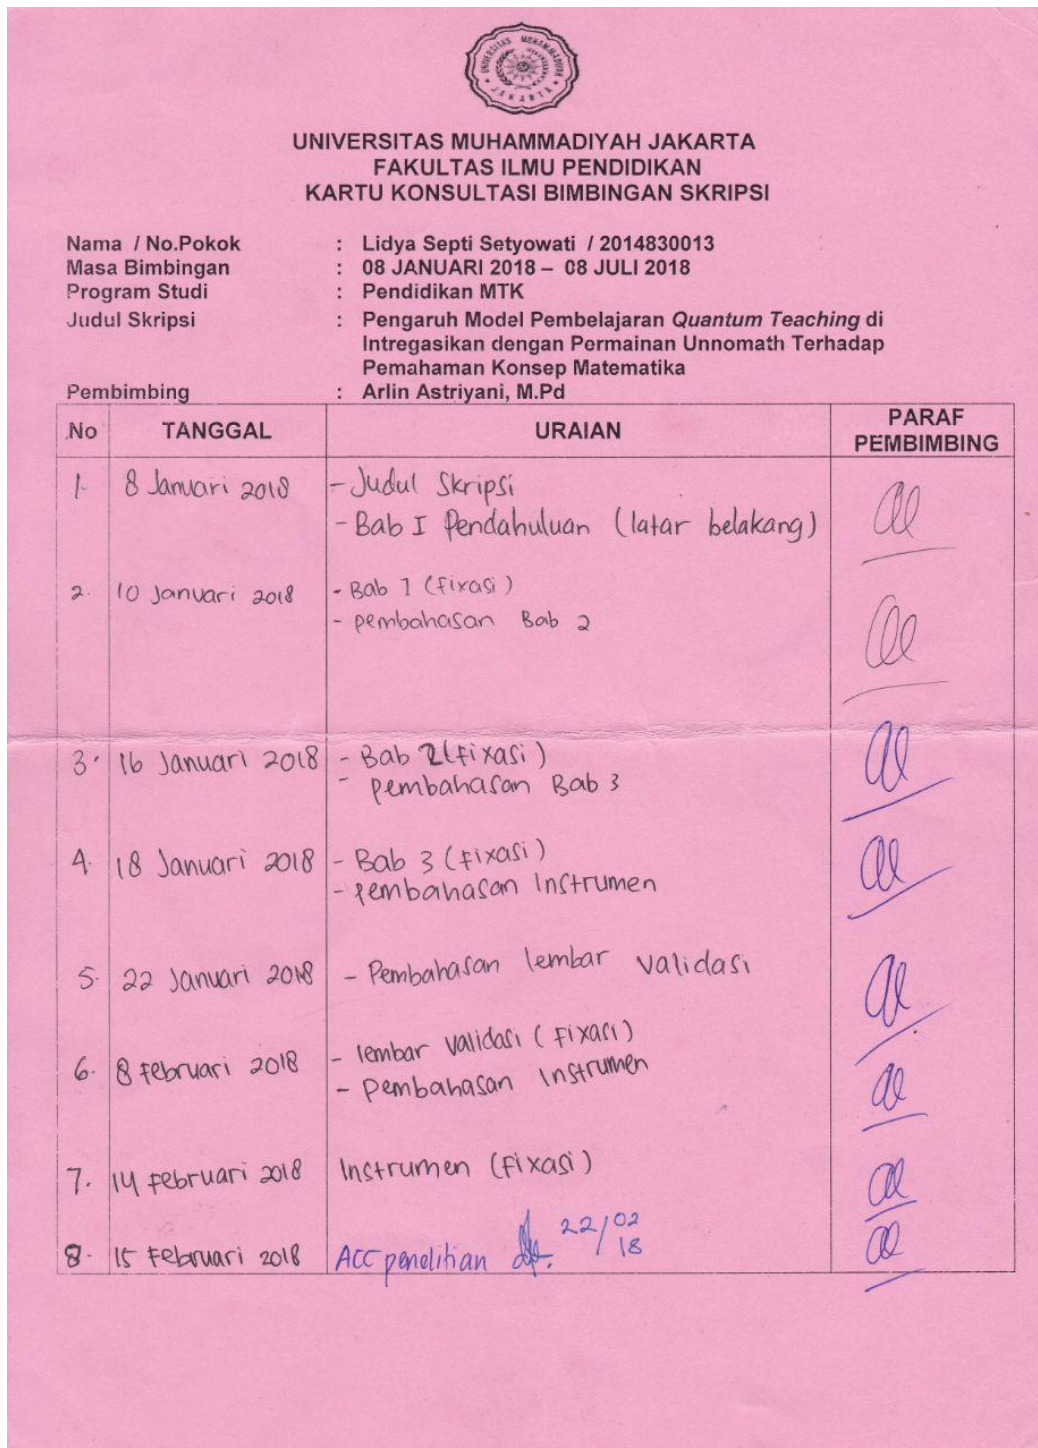 UNIVERSITAS MUHAMMADIYAH
JAKARTA
UNIVERSITAS MUHAMMADIYAH JAKARTA
FAKULTAS ILMU PENDIDIKAN
KARTU KONSULTASI BIMBINGAN SKRIPSI
Nama / No.Pokok : Lidya Septi Setyowati / 2014830013
Masa Bimbingan : 08 JANUARI 2018 – 08 JULI 2018
Program Studi : Pendidikan MTK
Judul Skripsi : Pengaruh Model Pembelajaran Quantum Teaching di
Intregasikan dengan Permainan Unnomath Terhadap
Pemahaman Konsep Matematika
Pembimbing : Arlin Astriyani, M.Pd
No TANGGAL URAIAN PARAF PEMBIMBING
1. 8 Januari 2018 - Judul Skripsi
- Bab I Pendahuluan (latar belakang)
2. 10 Januari 2018 - Bab 1 (fixasi)
- pembahasan Bab 2
3. 16 Januari 2018 - Bab 2 (fixasi)
- pembahasan Bab 3
4. 18 Januari 2018 - Bab 3 (fixasi)
- pembahasan Instrumen
5. 22 Januari 2018 - Pembahasan lembar validasi
6. 8 februari 2018 - lembar validasi (fixasi)
- Pembahasan Instrumen
7. 14 februari 2018 Instrumen (fixasi)
8. 15 Februari 2018 ACC penelitian 22/02 18